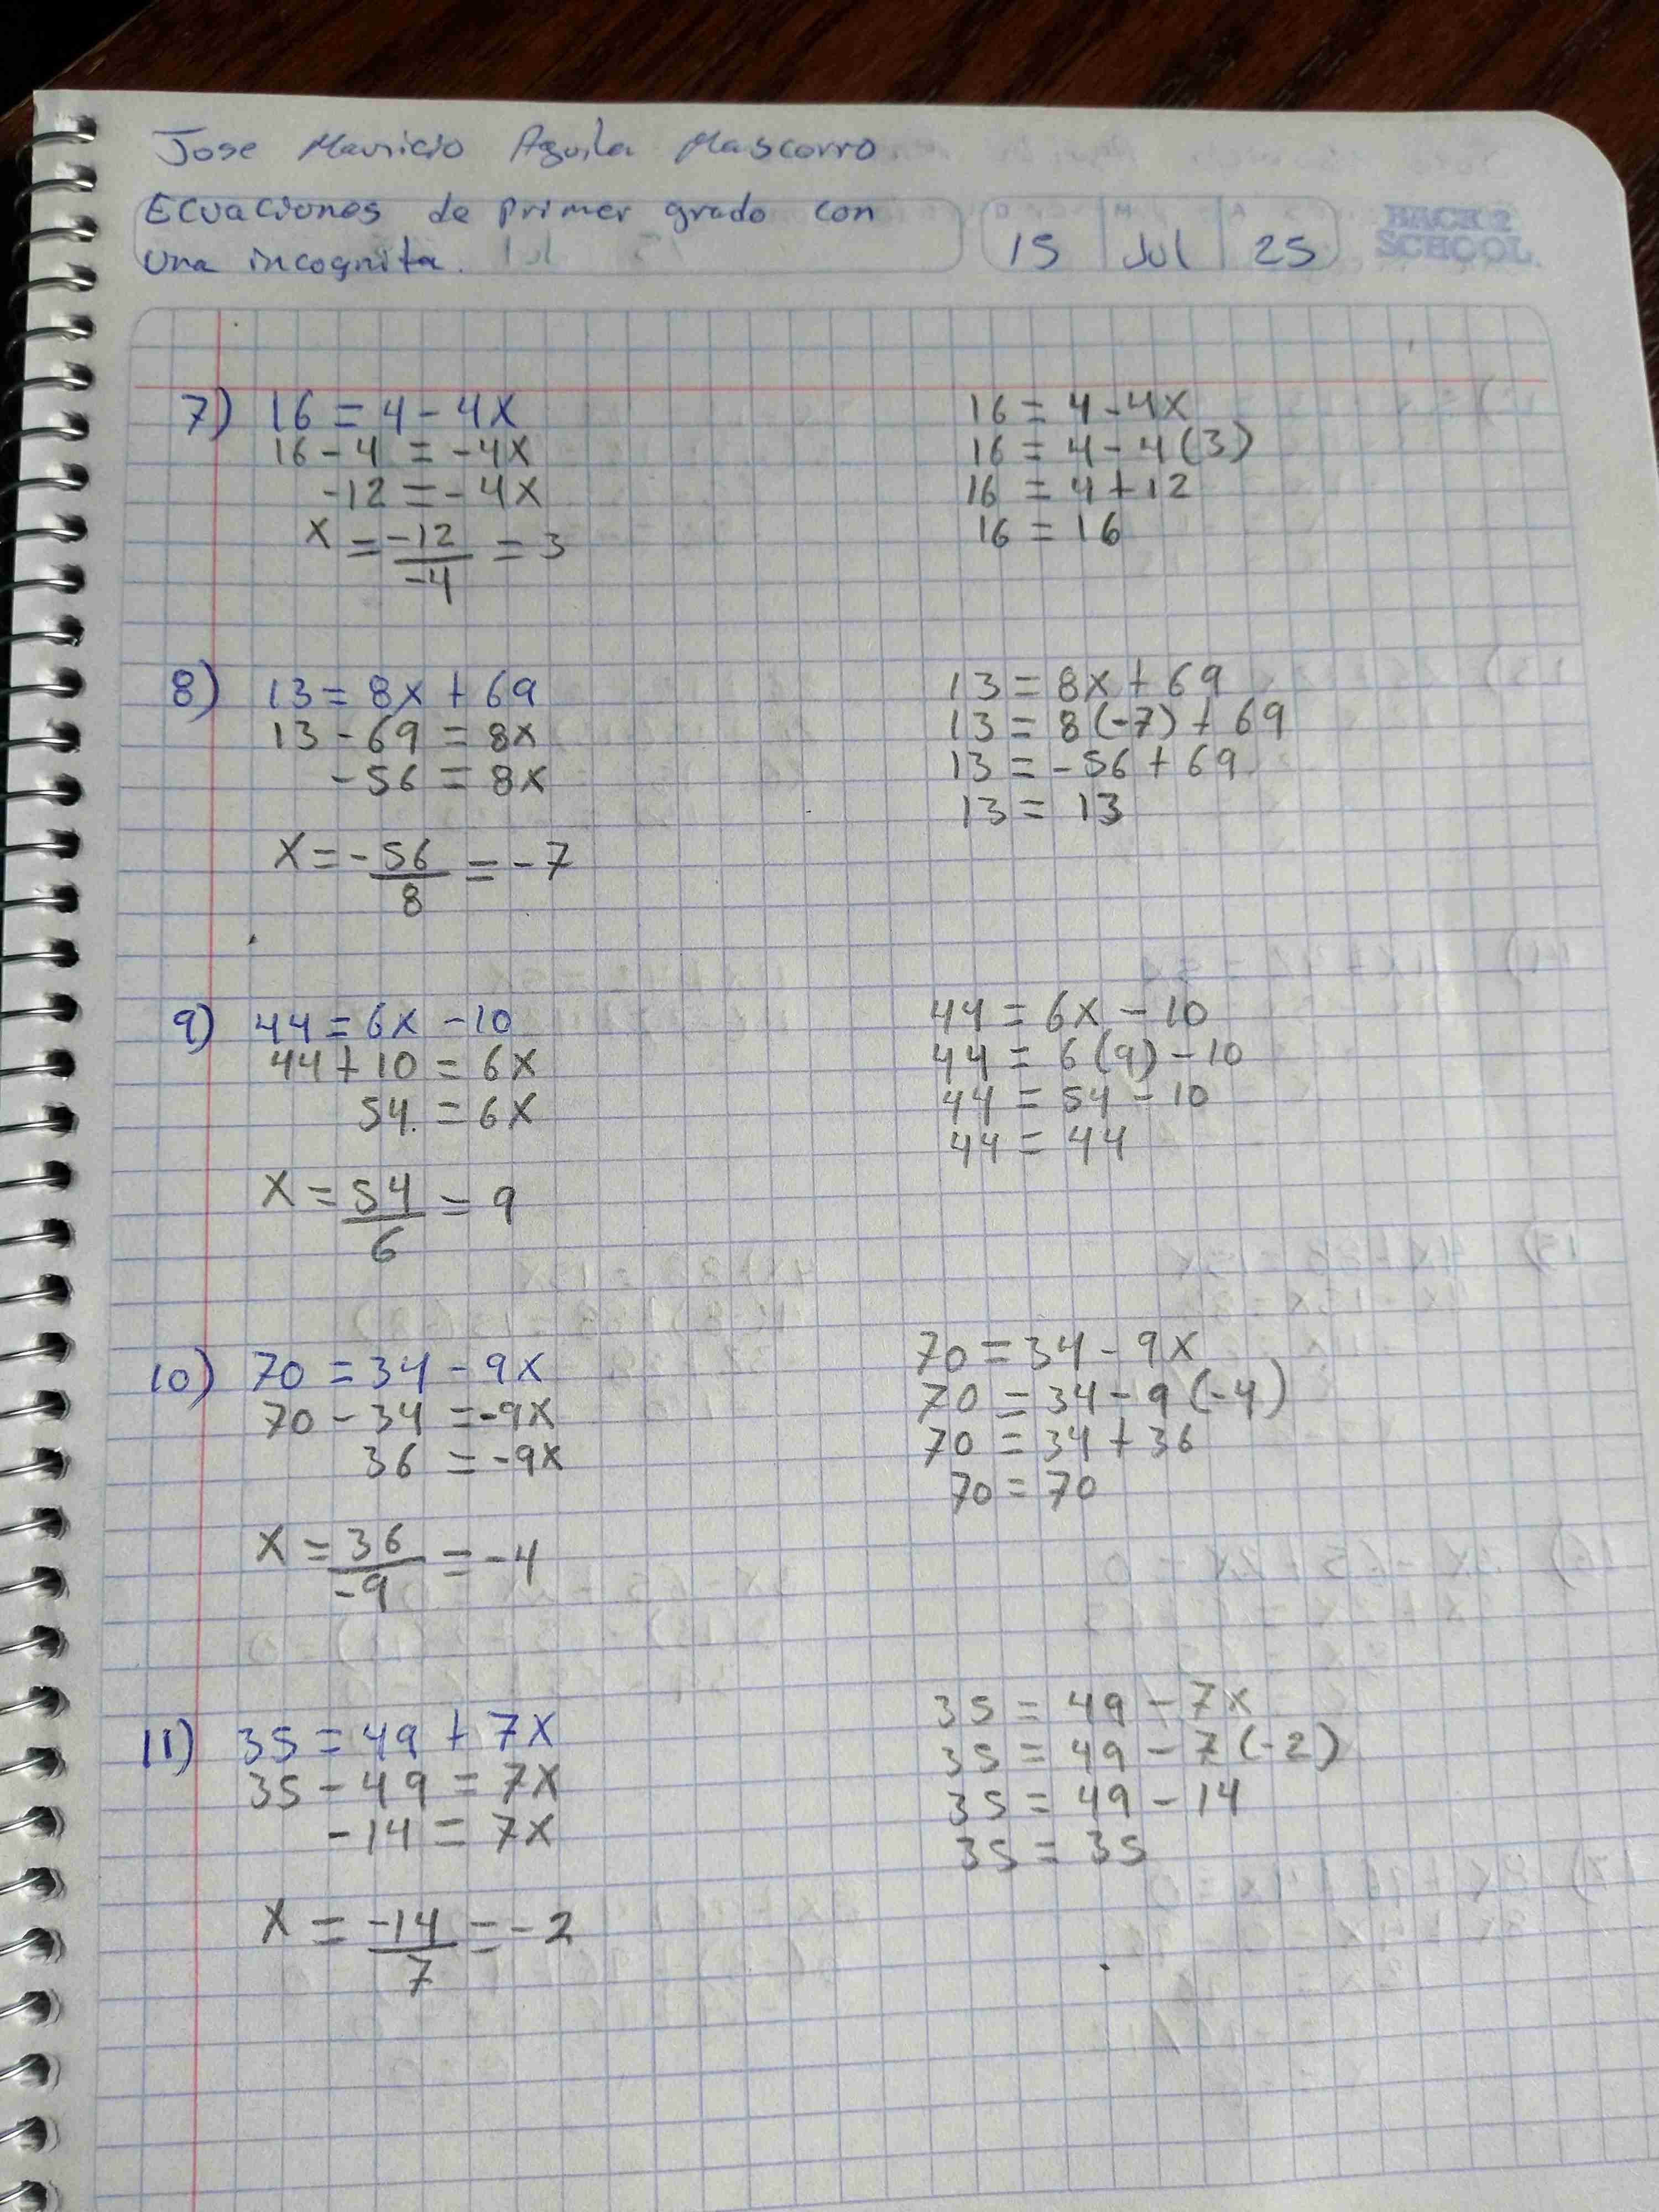 Jose Mauricio Aguila Mascorro
Ecuaciones de primer grado con
una incognita.
D M A
15 Jul 25
BACK 2
SCHOOL
7) 16 = 4 - 4x
16 - 4 = -4x
-12 = -4x
x = -12/-4 = 3
16 = 4 - 4x
16 = 4 - 4(3)
16 = 4 + 12
16 = 16
8) 13 = 8x + 69
13 - 69 = 8x
-56 = 8x
x = -56/8 = -7
13 = 8x + 69
13 = 8(-7) + 69
13 = -56 + 69
13 = 13
9) 44 = 6x - 10
44 + 10 = 6x
54 = 6x
x = 54/6 = 9
44 = 6x - 10
44 = 6(9) - 10
44 = 54 - 10
44 = 44
10) 70 = 34 - 9x
70 - 34 = -9x
36 = -9x
x = 36/-9 = -4
70 = 34 - 9x
70 = 34 - 9(-4)
70 = 34 + 36
70 = 70
11) 35 = 49 + 7x
35 - 49 = 7x
-14 = 7x
x = -14/7 = -2
35 = 49 - 7x
35 = 49 - 7(-2)
35 = 49 - 14
35 = 35